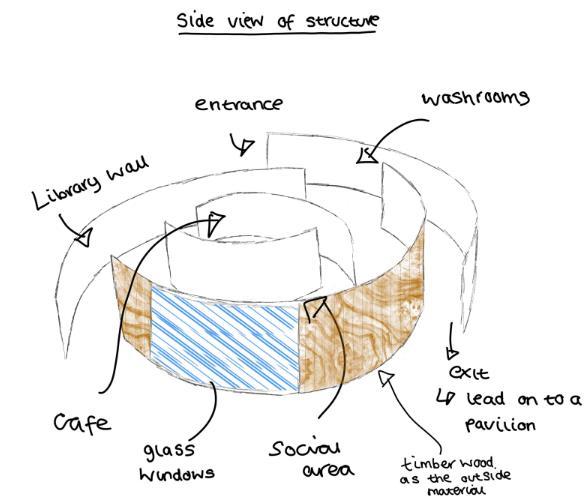 Side view of structure
entrance
washrooms
Library wall
cafe
glass
windows
social
area
exit
↳ lead on to a
pavilion
timber wood
as the outside
material